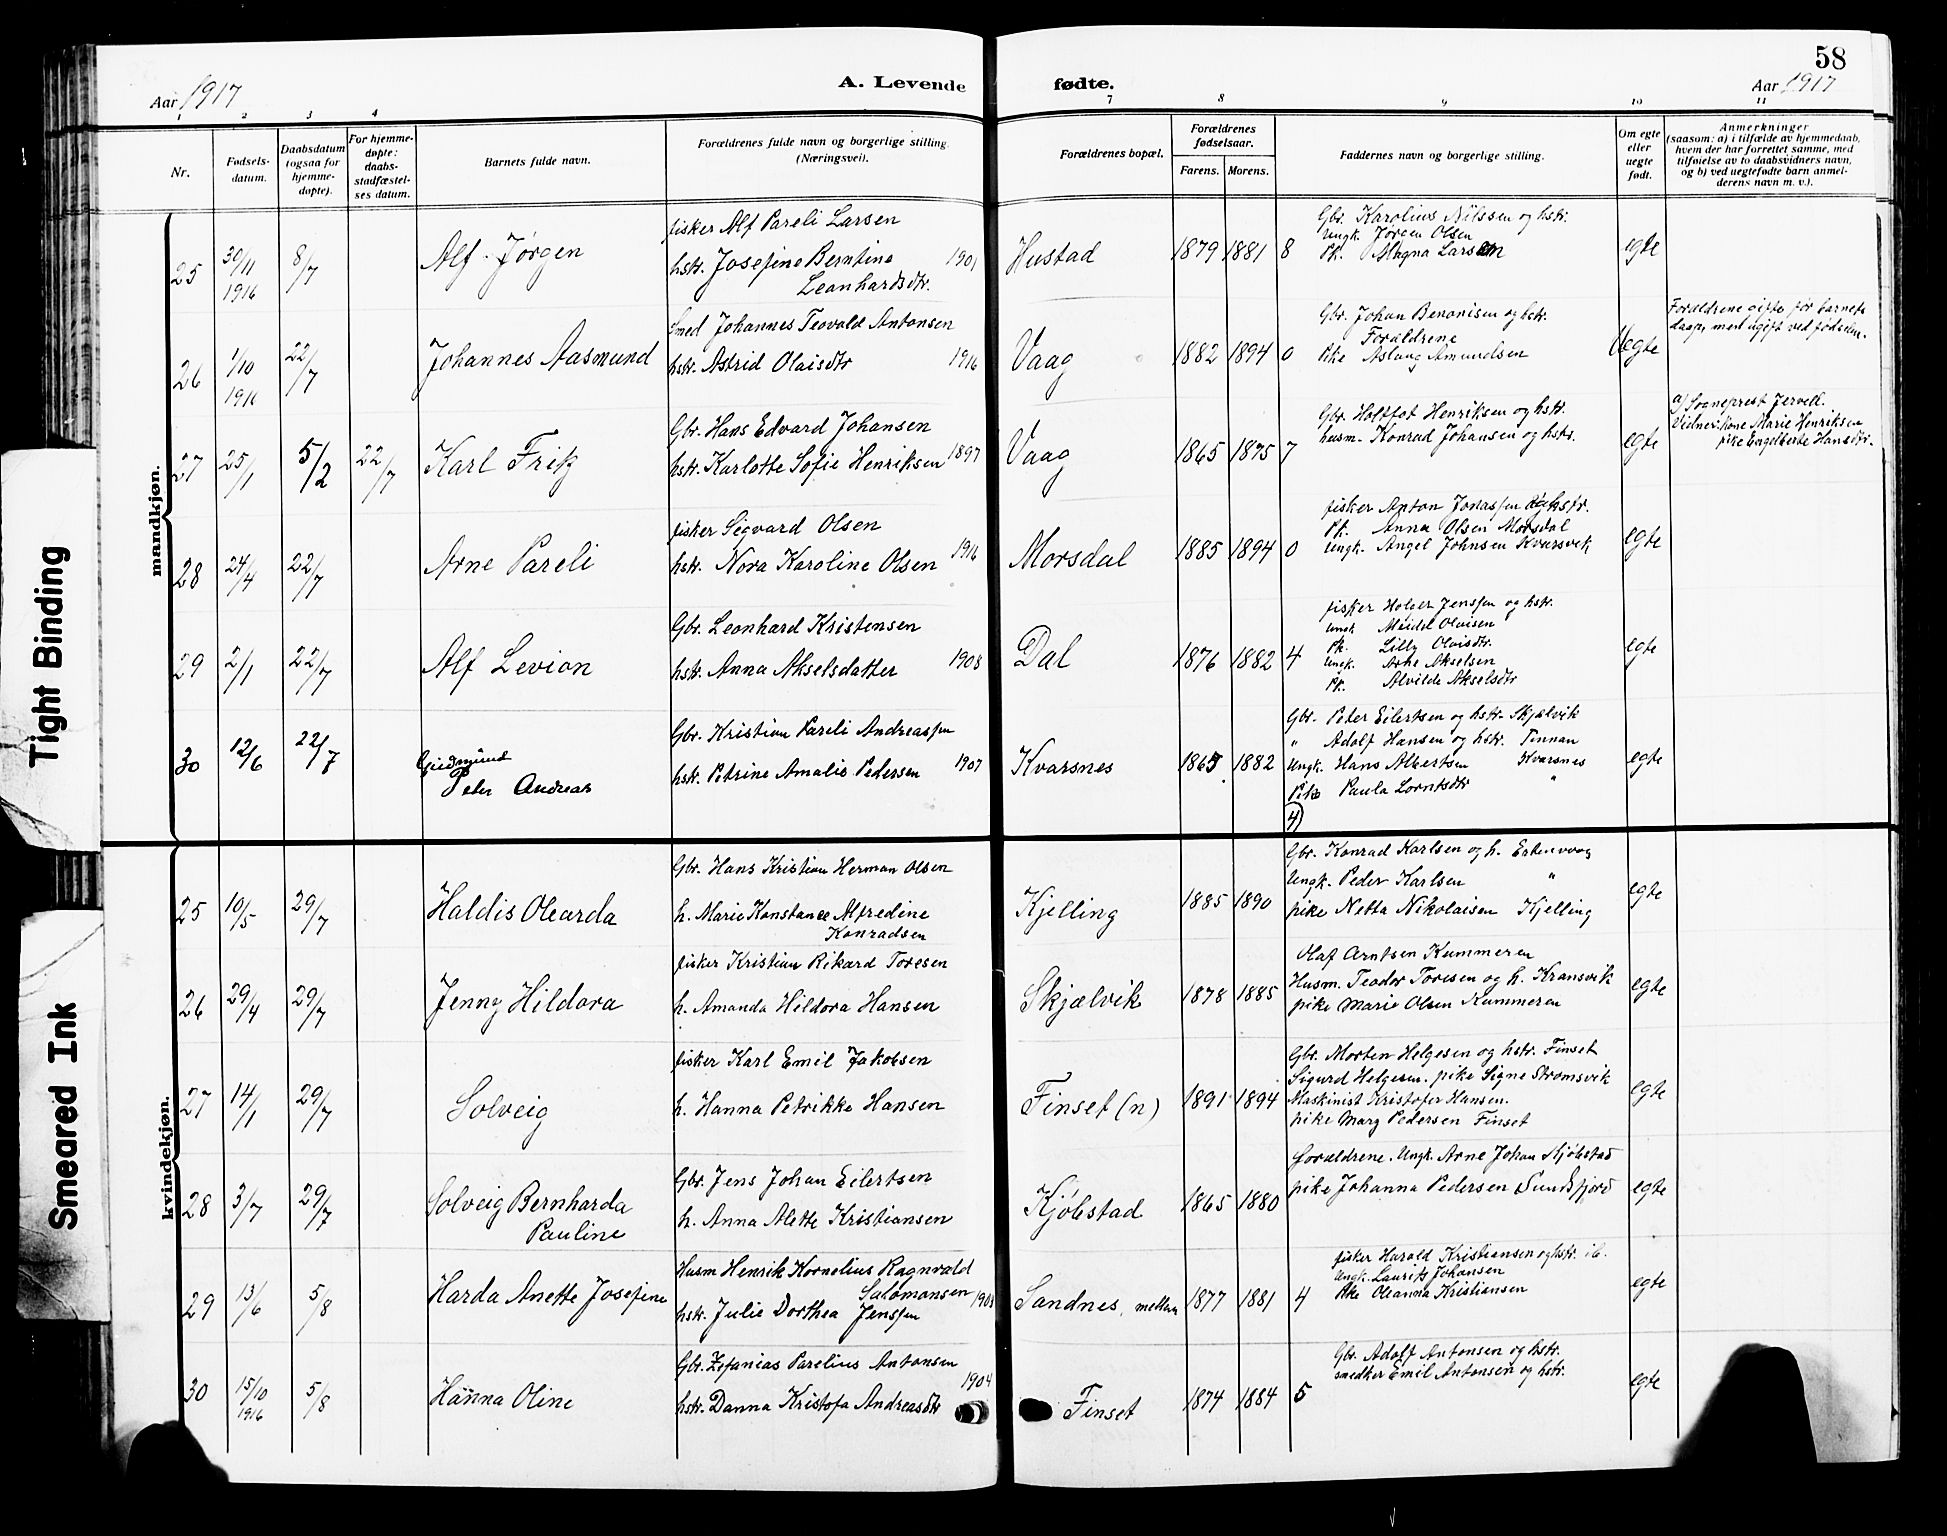 58
Aar 1917
A. Levende fødte.
Aar 1917
1 2 3 4 7 8 9 10 11
Nr.
Fødsels-
datum.
Daabsdatum
(ogsaa for
hjemme-
døpte).
For hjemme-
døpte:
daabs-
stadfæstel-
ses datum.
Barnets fulde navn.
Forældrenes fulde navn og borgerlige stilling
(Næringsvei).
Forældrenes bopæl.
Forældrenes
fødselsaar.
Farens. Morens.
Faddernes navn og borgerlige stilling.
Om egte
eller
uegte
født.
Anmerkninger
(saasom: a) i tilfælde av hjemmedaab,
hvem der har forrettet samme, med
tilføielse av to daabsvidners navn,
og b) ved uegtefødte barn anmel-
derens navn m. v.).
mandkjøn.
25 30/11 1916 8/7 Alf Jørgen
fisker Alf Pareli Larsen
hstr. Josefine Berntine 1901
Leonhardsdtr.
Hustad 1879 1881 8
Gbr. Karolius Nilssen og hstr.
Ungk. Jørgen Olsen
Pk. Magna Larsen
egte
26 1/10 1916 22/7 Johannes Aasmund
Smed Johannes Teovald Antonsen
hstr. Astrid Olaisdtr 1916
Vaag 1882 1894 0
Gbr. Johan Benonisen og hstr.
Forældrene
Pike Aslaug Amundsen
Uegte
Forældrene gifte før barnets
daap, men ugift ved fødselen.
27 25/1 5/2 22/7 Karl Fritz
Gbr. Hans Edvard Johansen
hstr. Karlotte Sofie Henriksen 1897
Vaag 1865 1875 7
Gbr. Holtfot Henriksen og hstr.
husm. Konrad Johansen og hstr.
egte
a) Sogneprest Jervell.
Vidner: kone Marie Henriksen
pike Engelberte Hansdtr.
28 24/4 22/7 Arne Pareli
fisker Sigvard Olsen
hstr. Nora Karoline Olsen 1916
Morsdal 1885 1894 0
fisker Anton Jonassen og hstr.
Pk. Anna Olsen Morsdal
Ungk. Angel Johnsen Kvarsvik
egte
29 2/1 22/7 Alf Levion
Gbr. Leonhard Kristensen
hstr. Anna Akselsdatter 1908
Dal 1876 1882 4
fisker Holger Jenssen og hstr.
Ungk Meidel Olaisen
Pk. Lilly Olaisdtr.
Ungk. Arne Akselsen
Pk. Alvilde Akselsdtr
egte
30 12/6 22/7 Gudmund
Peter Andreas
Gbr. Kristian Pareli Andreassen
hstr. Petrine Amalie Pedersen 1907
Kvarsnes 1865 1882
Gbr. Peter Eilertsen og hstr. Skjælvik
" Adolf Hansen og hstr. Tinnan
Ungk. Hans Albertsen Kvarsnes
Pike Paula Lorntsdtr "
4)
egte
kvindekjøn.
25 10/5 29/7 Haldis Olearda
Gbr. Hans Kristian Herman Olsen
h. Marie Konstance Alfredine
Konradsen
Kjelling 1885 1890
Gbr. Konrad Karlsen og h. Estenvaag
Ungk. Peder Karlsen "
pike Netta Nikolaisen Kjelling
egte
26 29/4 29/7 Jenny Hildora
fisker Kristian Rikard Toresen
h. Amanda Hildora Hansen
Skjælvik 1878 1885
Olaf Arntsen Kummeren
Husm. Teodor Toresen og h. Kransvik
pike Marie Olsen Kummeren
egte
27 14/1 29/7 Solveig
fisker Karl Emil Jakobsen
h. Hanna Petrikke Hansen
Finset (n) 1891 1894
Gbr. Morten Helgesen og hstr. Finset
Sigurd Helgesen. pike Signe Strømsvik
Maskinist Kristofer Hansen.
pike Marg Pedersen Finset
egte
28 3/7 29/7 Solveig Bernharda
Pauline
Gbr. Jens Johan Eilertsen
h. Anna Alette Kristiansen
Kjøbstad 1865 1880
Forældrene. Ungk. Arne Johan Kjøbstad
pike Johanna Pedersen Sundsfjord
egte
29 13/6 5/8 Harda Anette Josefine
Husm Henrik Kornelius Ragnvald
Salomonsen 1903
hstr. Julie Dorthea Jenssen
Sandnes, mellem 1877 1881 4
fisker Harald Kristiansen og hstr. ib.
Ungk. Laurits Johansen
Pike Oleanna Kristiansen
egte
30 15/10 1916 5/8 Hanna Oline
Gbr. Zefanias Parelius Antonsen
hstr. Danna Kristofa Andreasdtr 1904
Finset 1874 1884 5
Gbr. Adolf Antonsen og hstr.
smedker Emil Antonsen og hstr.
egte
Tight Binding
Smeared Ink